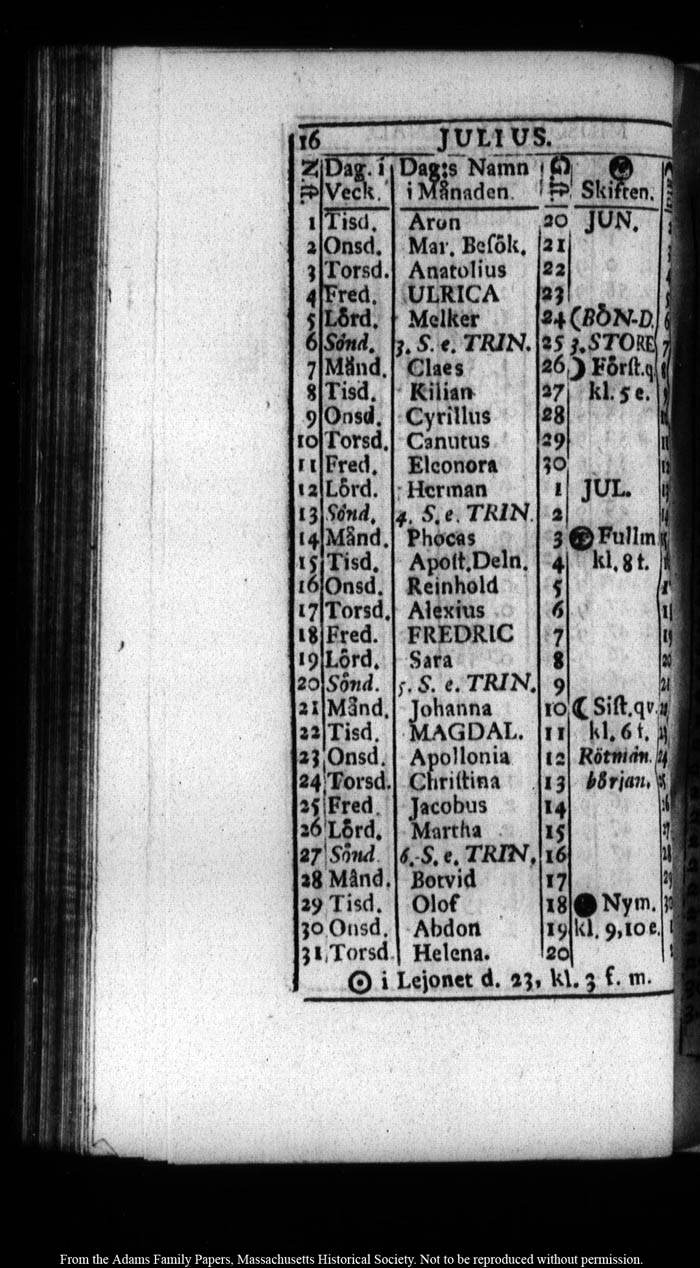 16 JULIUS.
N. st. Dag. i Dag:s Namn G. st.
Veck. i Månaden. Skiften.
1 Tisd. Aron 20 JUN.
2 Onsd. Mar. Besök. 21
3 Torsd. Anatolius 22
4 Fred. ULRICA 23
5 Lörd. Melker 24 (BÖN-D.
6 Sönd. 3. S. e. TRIN. 25 3. STORE
7 Månd. Claes 26 ☽ Först.q
8 Tisd. Kilian 27 kl. 5 e.
9 Onsd. Cyrillus 28
10 Torsd. Canutus 29
11 Fred. Eleonora 30
12 Lörd. Herman 1 JUL.
13 Sönd. 4. S. e. TRIN. 2
14 Månd. Phocas 3 Fullm
15 Tisd. Apost. Deln. 4 kl. 8 f.
16 Onsd. Reinhold 5
17 Torsd. Alexius 6
18 Fred. FREDRIC 7
19 Lörd. Sara 8
20 Sönd. 5. S. e. TRIN. 9
21 Månd. Johanna 10 ☾ Sist.qv.
22 Tisd. MAGDAL. 11 kl. 6 f.
23 Onsd. Apollonia 12 Rötmån.
24 Torsd. Christina 13 början.
25 Fred. Jacobus 14
26 Lörd. Martha 15
27 Sönd. 6. S. e. TRIN. 16
28 Månd. Botvid 17
29 Tisd. Olof 18 ● Nym.
30 Onsd. Abdon 19 kl. 9,10 e.
31 Torsd. Helena. 20
☉ i Lejonet d. 23, kl. 3 f. m.
From the Adams Family Papers, Massachusetts Historical Society. Not to be reproduced without permission.